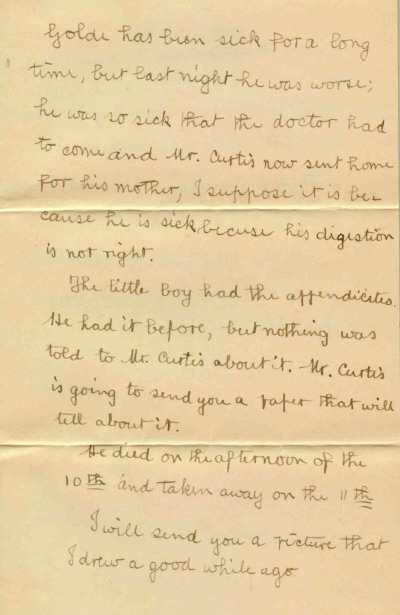 Golde has been sick for a long
time, but last night he was worse;
he was so sick that the doctor had
to come and Mr. Curtis now sent home
for his mother, I suppose it is be-
cause he is sick, becuse his digestion
is not right.
The little boy had the appendicites.
He had it before, but nothing was
told to Mr. Curtis about it. Mr. Curtis
is going to send you a paper that will
tell about it.
He died on the afternoon of the
10th and taken away on the 11th
I will send you a picture that
I drew a good while ago.